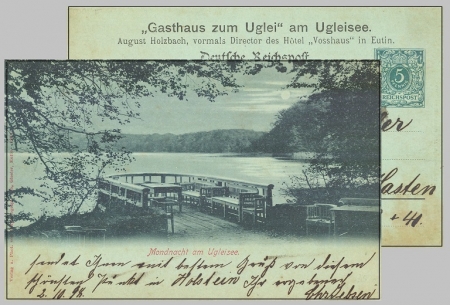 „Gasthaus zum Uglei“ am Ugleisee.
August Holzbach, vormals Director des Hôtel „Vosshaus“ in Eutin.
Deutsche Reichspost
5
REICHSPOST
Kasten
Mondnacht am Ugleisee.
sendet Ihnen mit bestem Gruß von diesem
schönsten Punkt in Holstein Ihr ergebener
2.10.98.